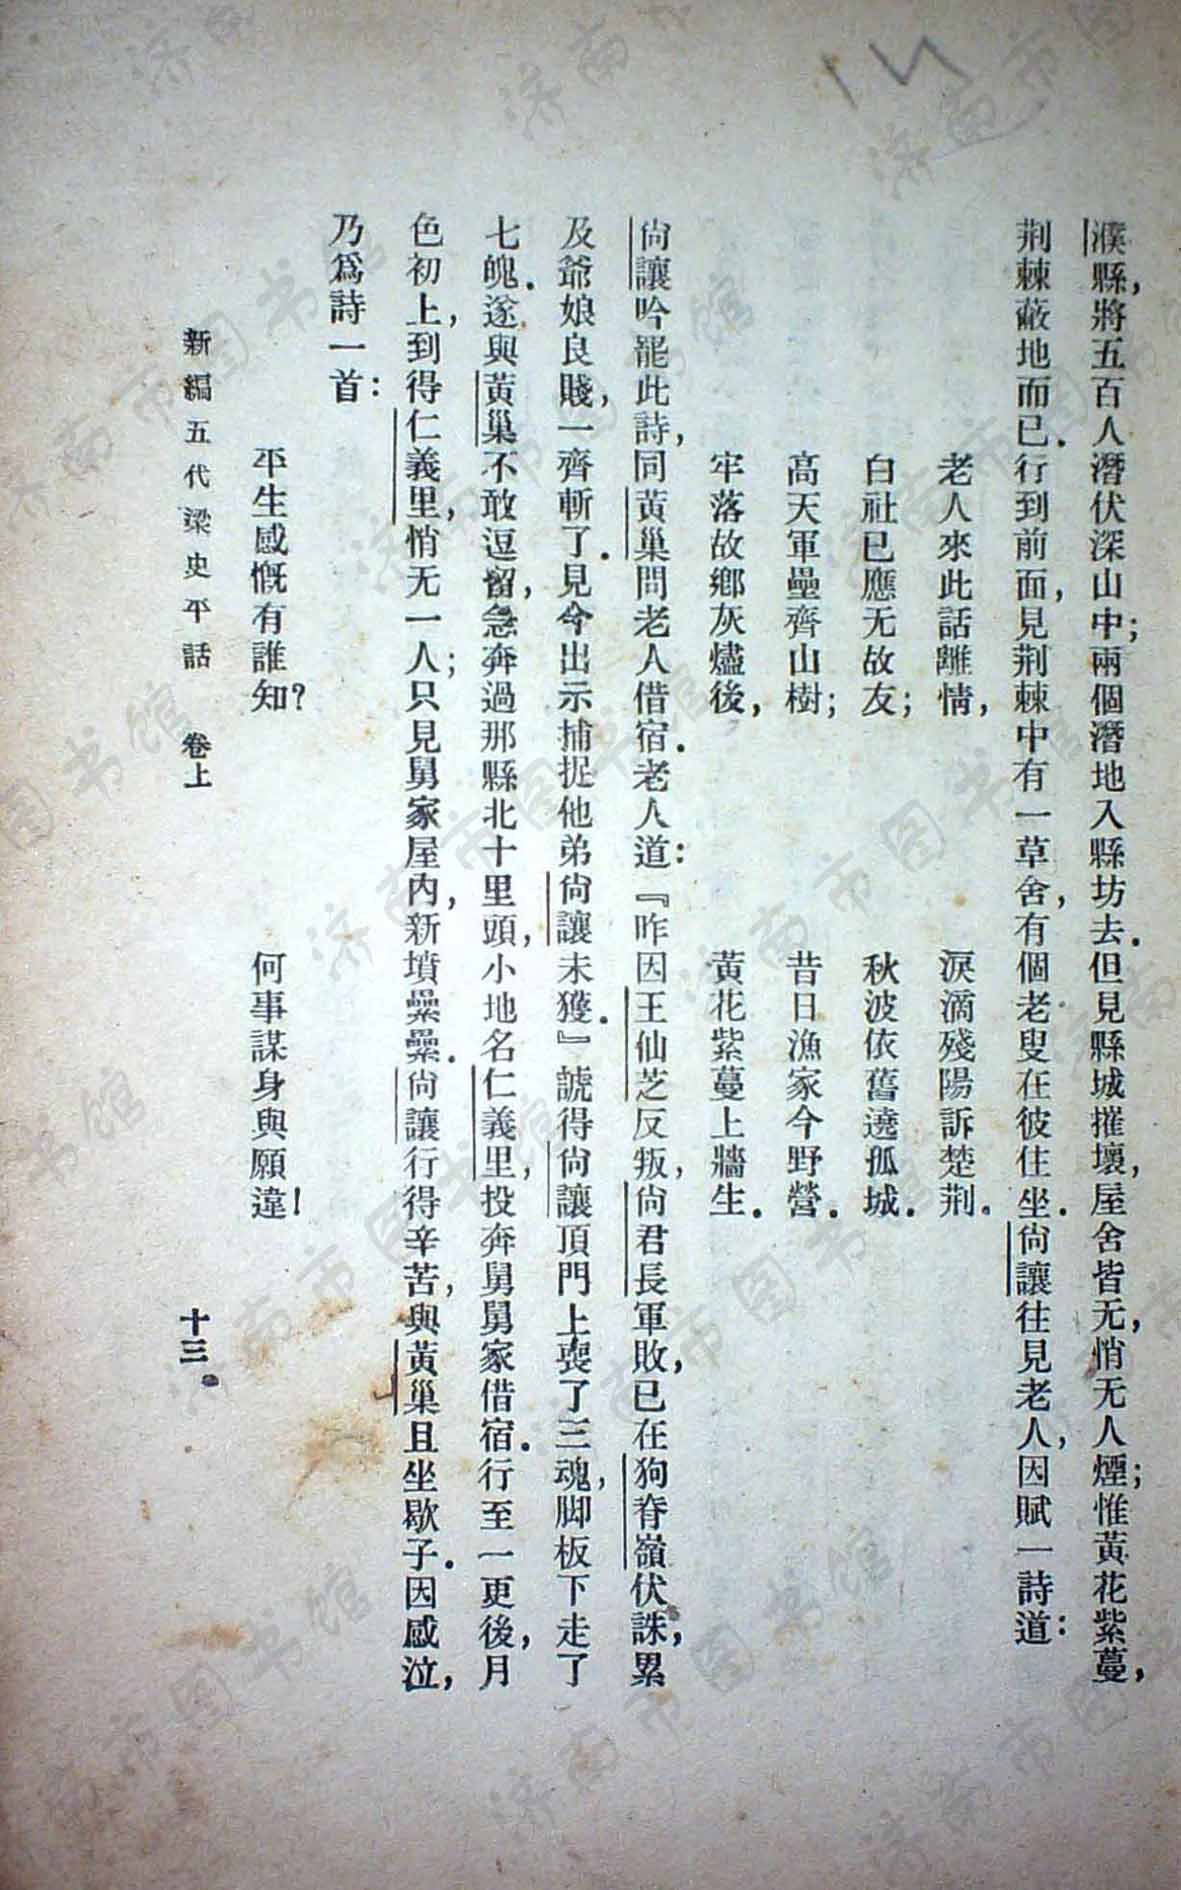 濮縣，將五百人潛伏深山中；兩個潛地入縣坊去．但見縣城摧壞，屋舍皆无，悄无人煙；惟黃花紫蔓，
荆棘蔽地而已．行到前面，見荆棘中有一草舍，有個老叟在彼住坐．尙讓往見老人，因賦一詩道：
老人來此話離情，　淚滴殘陽訴楚荆。
白社已應无故友；　秋波依舊遶孤城．
高天軍壘齊山樹；　昔日漁家今野營．
牢落故鄕灰燼後，　黃花紫蔓上牆生．
尙讓吟罷此詩，同黃巢問老人借宿．老人道：『昨因王仙芝反叛，尙君長軍敗，已在狗脊嶺伏誅，累
及爺娘良賤，一齊斬了．見今出示捕捉他弟尙讓未獲．』諕得尙讓頂門上喪了三魂，脚板下走了
七魄．遂與黃巢不敢逗留，急奔過那縣北十里頭，小地名仁義里，投奔舅舅家借宿．行至一更後，月
色初上，到得仁義里，悄无一人；只見舅家屋內，新墳纍纍．尙讓行得辛苦，與黃巢且坐歇子．因感泣，
乃爲詩一首：
平生感慨有誰知？　何事謀身與願違！
新編五代梁史平話　卷上　十三
济南市图书馆